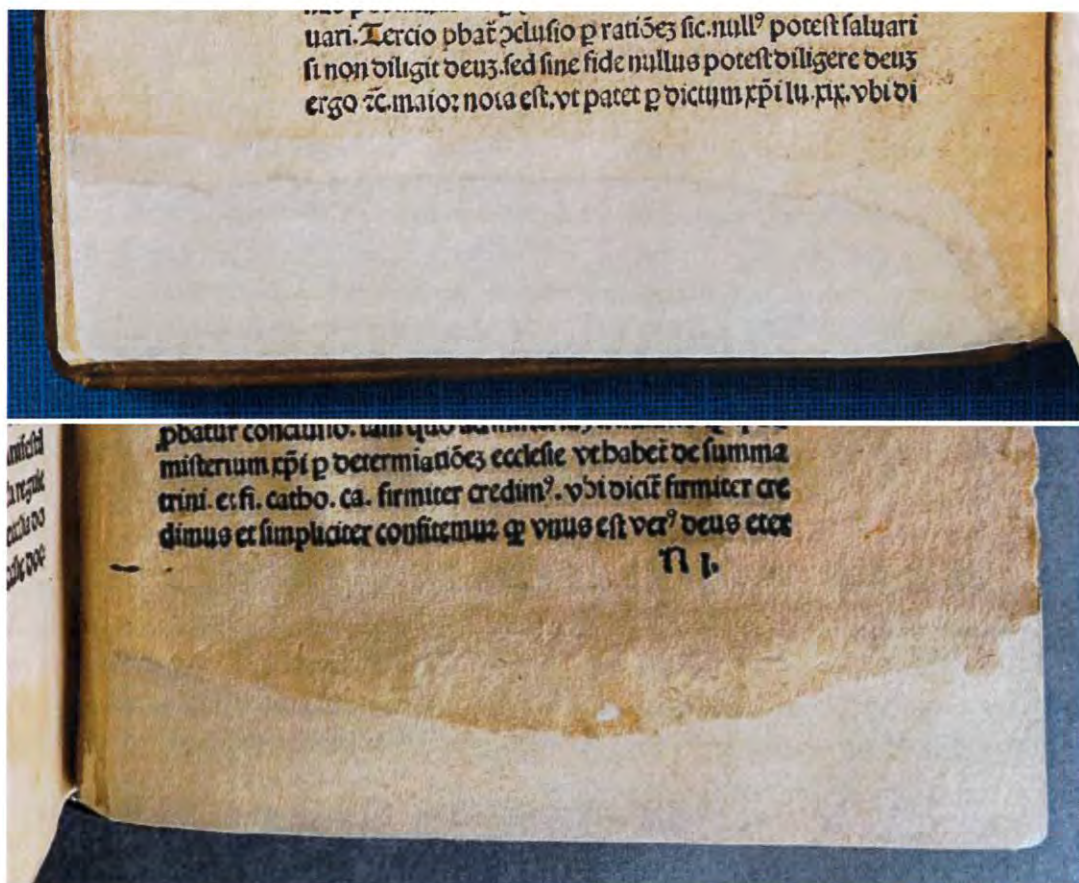 uari. Tercio ꝓbat̄ ↄclusio ꝑ ratiõeꝫ sic. null⁹ potest saluari
si non diligit deuꝫ. sed sine fide nullus potest diligere deuꝫ
ergo ⁊c. maior nota est. vt patet ꝑ dictum xp̄i lu. xix. vbi di
ꝓbatur conclusio.
misterium xp̄i ꝑ determiatiõeꝫ ecclesie vt habet̄ de summa
trini. et fi. catho. ca. firmiter credim⁹. vbi dicit̄ firmiter cre
dimus et simpliciter confitemur ꝙ vnus est ver⁹ deus eter
N j.